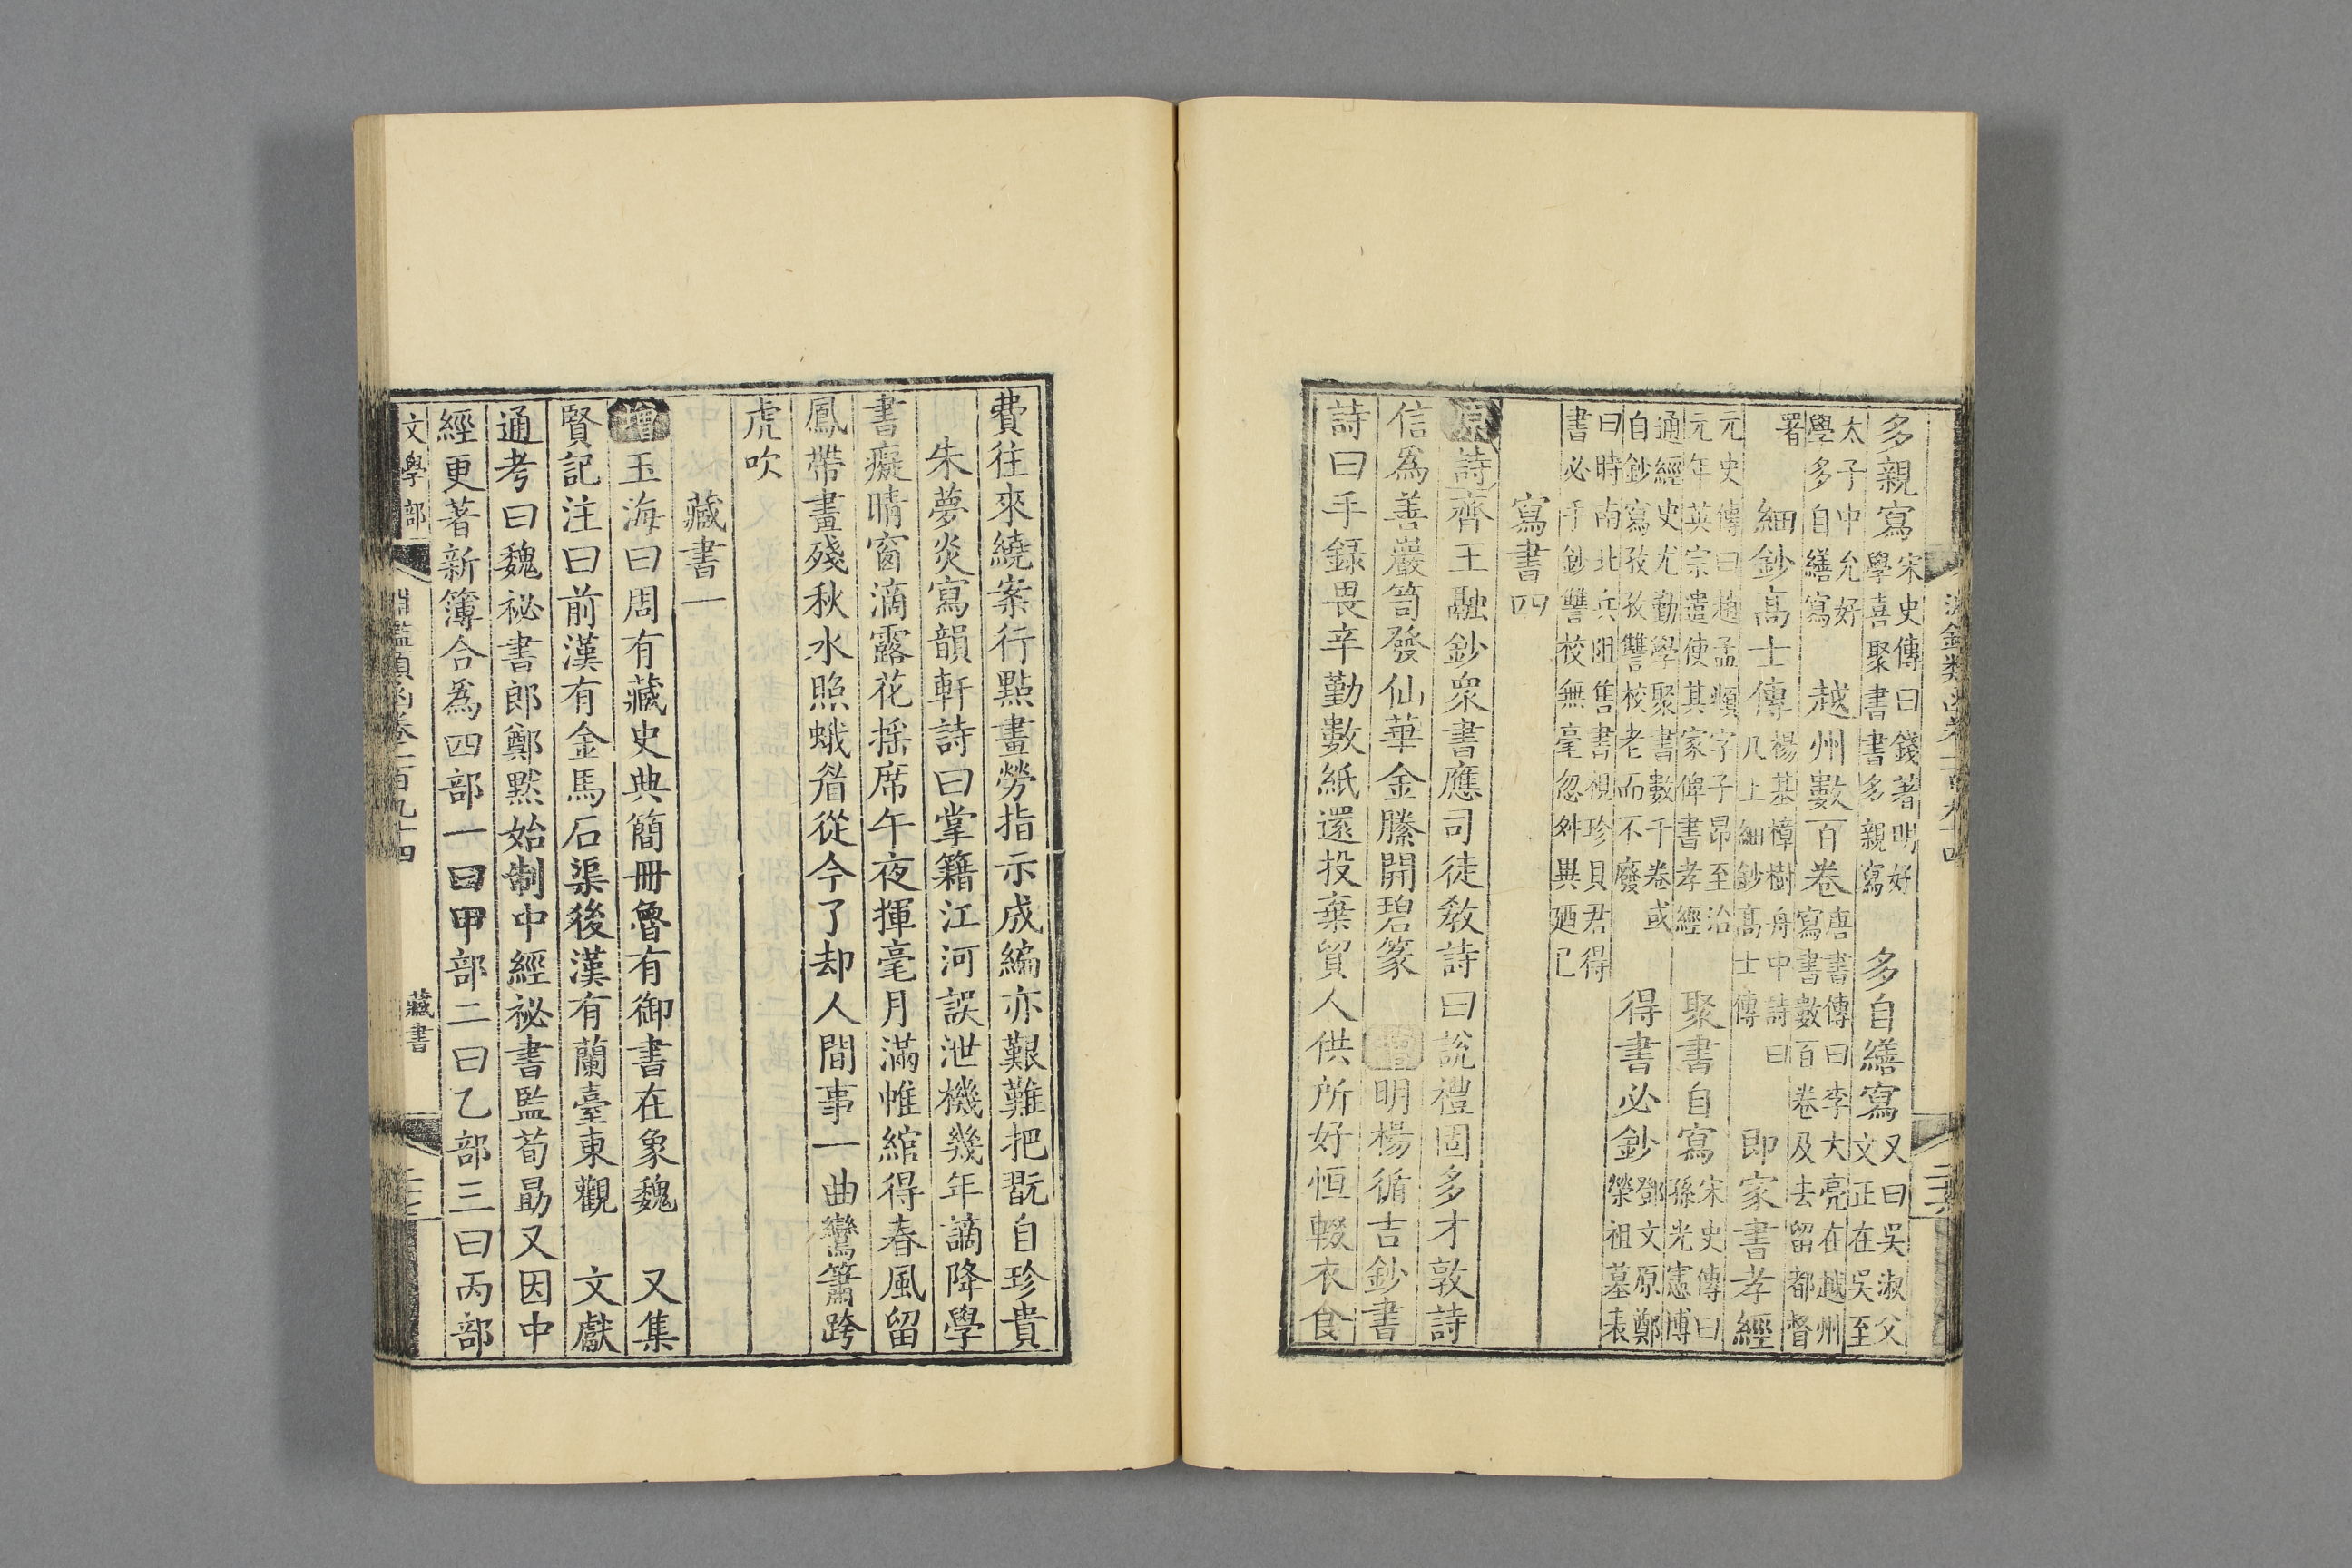 多親寫宋史傳曰錢著明好學喜聚書書多親寫　多自繕寫又曰吳淑父文正在吳至
太子中允好學多自繕寫　越州數百卷唐書傳曰李大亮在越州寫書數百卷及去留都督
署　細鈔高士傳楊基樟樹舟中詩曰几上細鈔高士傳　即家書孝經
元史傳曰趙孟頫字子昂至治元年英宗遣使其家俾書孝經　聚書自寫宋史傳曰孫光憲博
通經史尤勤學聚書數千卷或自鈔寫孜孜讐校老而不廢　得書必鈔鄧文原鄭榮祖墓表
曰時南北兵阻雋書視珍貝君得書必手鈔讐校無毫忽舛異廼已
寫書四
原詩齊王融鈔衆書應司徒敎詩曰說禮固多才敦詩
信爲善巖笥發仙華金縢開碧篆　增明楊循吉鈔書
詩曰手錄畏辛勤數紙還投棄貿人供所好恒輟衣食
費往來繞案行點畫勞指示成編亦艱難把翫自珍貴
朱夢炎寫韻軒詩曰掌籍江河誤泄機幾年謫降學
書癡晴窗滴露花揺席午夜揮毫月滿帷綰得春風留
鳳帶畫殘秋水照蛾眉從今了却人間事一曲鸞簫跨
虎吹
藏書一
增玉海曰周有藏史典簡冊魯有御書在象魏　又集
賢記注曰前漢有金馬石渠後漢有蘭臺東觀　文獻
通考曰魏祕書郎鄭默始制中經祕書監荀勗又因中
經更著新簿合爲四部一曰甲部二曰乙部三曰丙部
文學部　淵鑑類函卷二百九十四　藏書　二十七